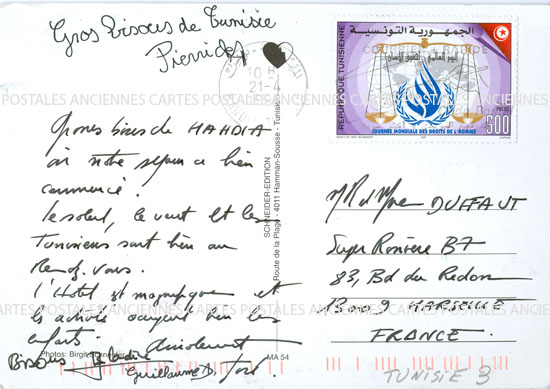 Gros Bisous de Tunisie
Pierrick
الجمهورية التونسية
REPUBLIQUE TUNISIENNE
اليوم العالمي لحقوق الإنسان
JOURNEE MONDIALE DES DROITS DE L'HOMME
500
10
21-4
CARTES POSTALES ANCIENNES CARTES POSTALES ANCIENNES CARTES POSTALES
Grosses bises de MAHDIA
où notre séjour a bien
commencé.
Le soleil, le vent et les
Tunisiens sont bien au
Rendez-vous.
L'Hotel est magnifique et
les activités occupent bien les
enfants. Amicalement
Bisous
Guillaume
Photos: Birgit Schneider
SCHNEIDER-EDITION
Route de la Plage - 4011 Hamman-Sousse - Tunisie
MA 54
M et Mme DUFFAUT
Super Rouvière B7
83, Bd du Redon
13009 MARSEILLE
FRANCE
TUNISIE 3